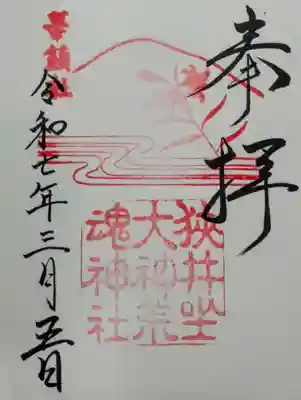 奉拝
狭井坐
大神荒
魂神社
華鎮社
令和七年三月五日